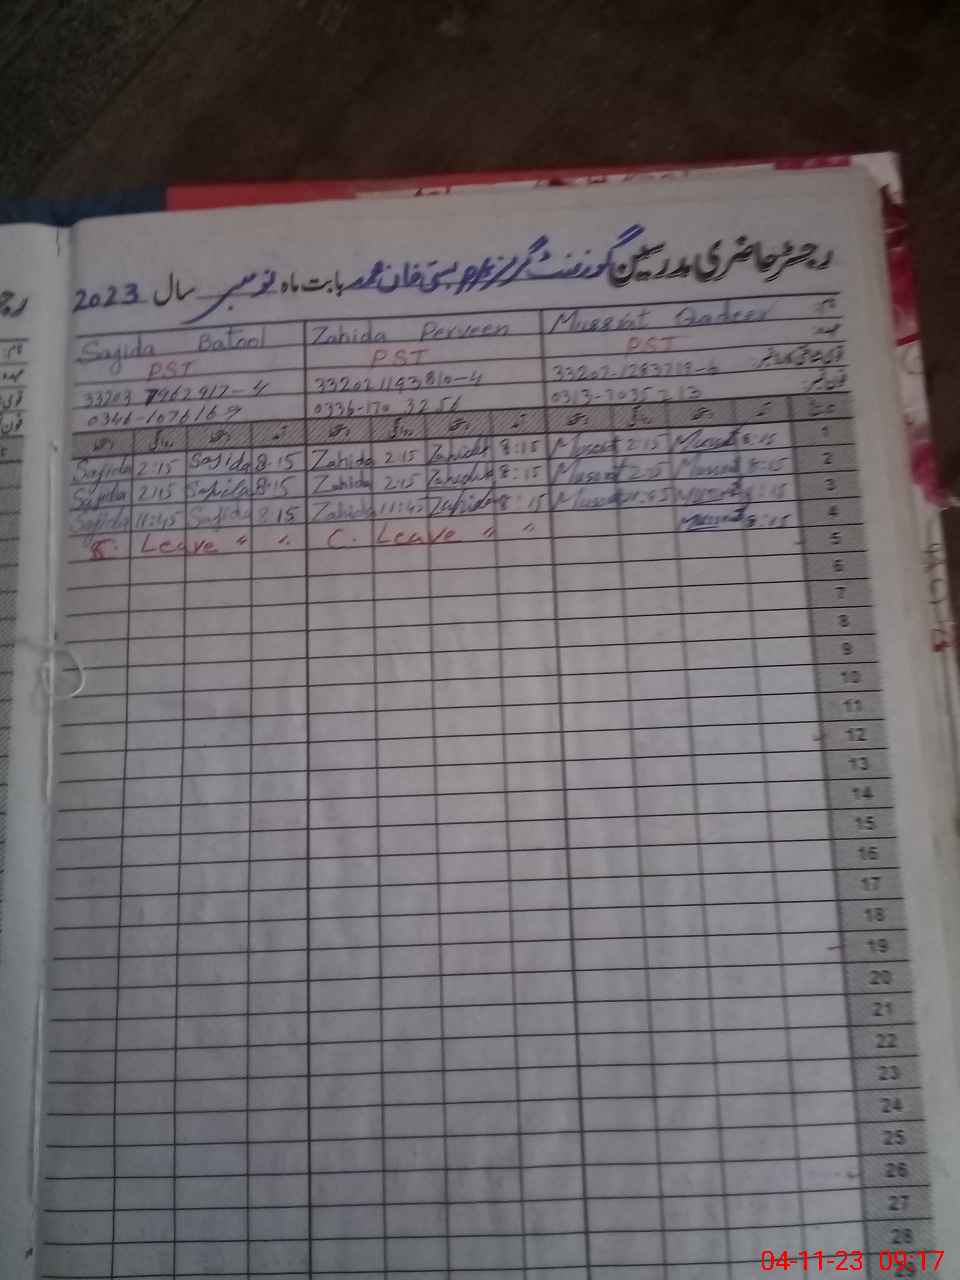 رجسٹر حاضری مدرسین گورنمنٹ گرلز بستی خان محمد بابت ماہ نومبر سال 2023
Sajida Batool Zahida Perveen Mussrat Qadeer نام:
PST PST PST عہدہ
33203 7962917-4 332021143810-4 33202-1283718-6
0346-1076169 0336-170 3256 0313-7035713 فون نمبر:
دستخط روانگی دستخط آمد دستخط روانگی دستخط آمد دستخط روانگی دستخط آمد تاریخ
Sajida 2:15 Sajida 8:15 Zahida 2:15 Zahida 8:15 Mussrat 2:15 Mussrat 8:15 1
Sajida 2:15 Sajida 8:15 Zahida 2:15 Zahida 8:15 Mussrat 2:15 Mussrat 8:15 2
Sajida 11:45 Sajida 8:15 Zahida 11:45 Zahida 8:15 Mussrat 11:45 Mussrat 8:15 3
Leave " " C. Leave " " Mussrat 8:15 4
5
6
7
8
9
10
11
12
13
14
15
16
17
18
19
20
21
22
23
24
25
26
27
28
29
04-11-23 09:17